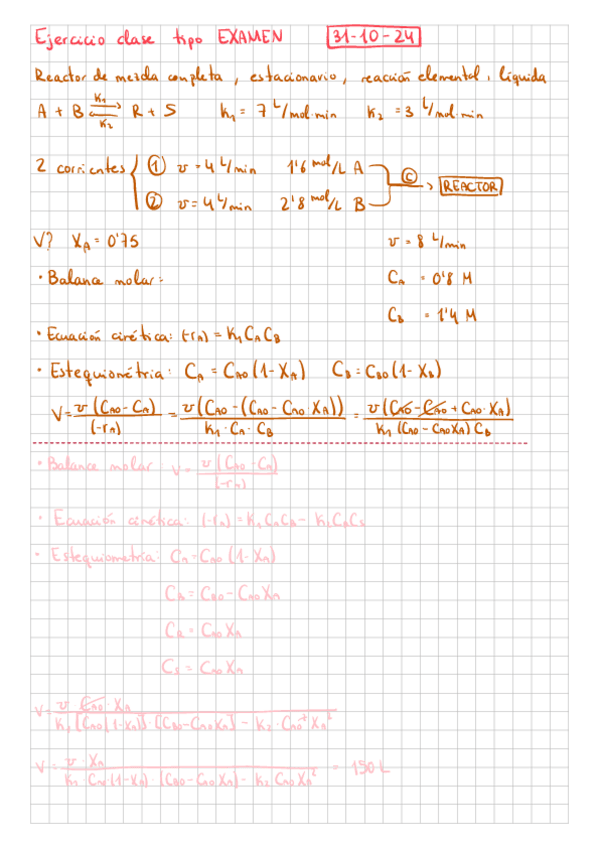 Ejercicio clase tipo EXAMEN 31-10-24
Reactor de mezcla completa, estacionario, reacción elemental, líquida
A + B ⇌ R + S K₁ K₂ K₁ = 7 L/mol·min K₂ = 3 L/mol·min
2 corrientes { ① v = 4 L/min 1'6 mol/L A
② v = 4 L/min 2'8 mol/L B
C → REACTOR
V? X_A = 0'75 v = 8 L/min
· Balance molar: C_A = 0'8 M
C_B = 1'4 M
· Ecuación cinética: (-r_A) = K₁ C_A C_B
· Estequiométria: C_A = C_A0 (1 - X_A) C_B = C_B0 (1 - X_B)
V = v (C_A0 - C_A) / (-r_A) = v (C_A0 - (C_A0 - C_A0 X_A)) / K₁ · C_A · C_B = v (C_A0 - C_A0 + C_A0 · X_A) / K₁ (C_A0 - C_A0 X_A) C_B
· Balance molar: V = v (C_A0 - C_A) / (-r_A)
· Ecuación cinética: (-r_A) = K₁ C_A C_B - K₂ C_R C_S
· Estequiometria: C_A = C_A0 (1 - X_A)
C_B = C_B0 - C_A0 X_A
C_R = C_A0 X_A
C_S = C_A0 X_A
V = v · C_A0 · X_A / K₁ [C_A0 (1 - X_A)] · [C_B0 - C_A0 X_A] - K₂ · C_A0² X_A²
V = v · X_A / K₁ · C_A0 · (1 - X_A) · (C_B0 - C_A0 X_A) - K₂ C_A0 X_A² = 190 L